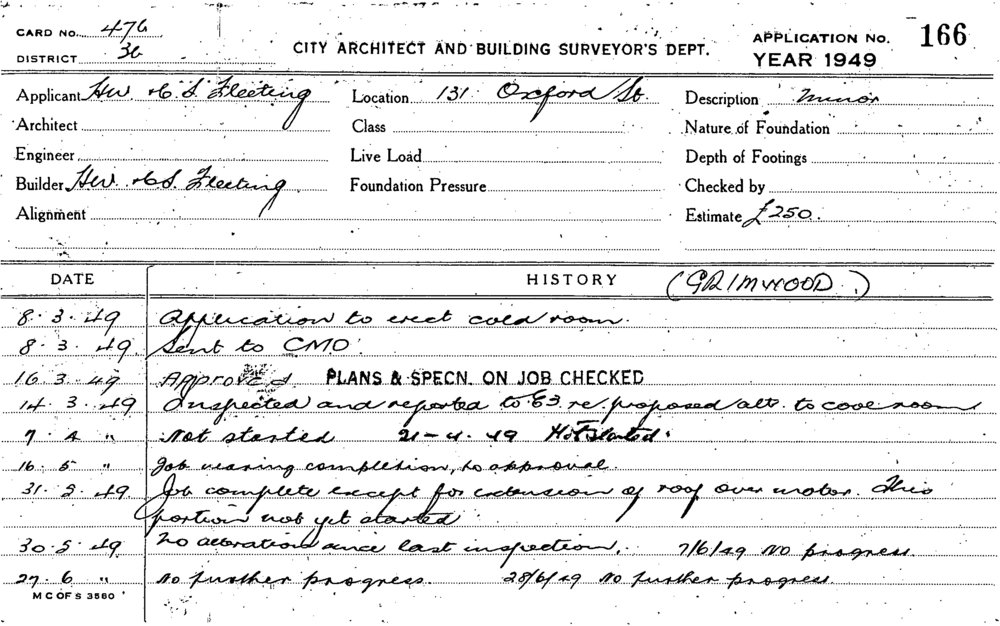 CARD No. 476
DISTRICT 3c
CITY ARCHITECT AND BUILDING SURVEYOR'S DEPT.
APPLICATION No. 166
YEAR 1949
Applicant Hw. & C. S. Fleeting
Location 131 Oxford St.
Description Minor
Architect
Class
Nature of Foundation
Engineer
Live Load
Depth of Footings
Builder Hw. & C S. Fleeting
Foundation Pressure
Checked by
Alignment
Estimate £250.
DATE HISTORY (GRIMWOOD.)
8. 3. 49 Application to erect cold room.
8. 3. 49. Sent to CMO.
16 3. 49 Approved PLANS & SPECN. ON JOB CHECKED
14. 3. 49 Inspected and reported to E3. re proposed alt. to cool room
7. 4 " Not started 21-4.49 Not started.
16. 5 " Job nearing completion, to approval.
31. 5. 49. Job complete except for extension of roof over motor. This
portion not yet started
30. 5. 49 No alterations since last inspection. 7/6/49 No progress.
27. 6 " No further progress. 28/6/49 No further progress.
M C OF S 3580